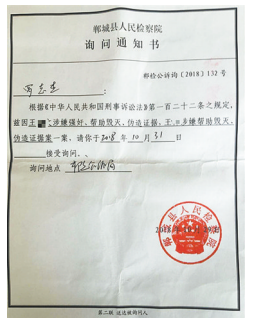 郸城县人民检察院
询问通知书
郸检公诉询〔2018〕132号
根据《中华人民共和国刑事诉讼法》第一百二十二条之规定,
兹因王 涉嫌强奸、帮助毁灭、伪造证据,王 涉嫌帮助毁灭、
伪造证据案一案,请你于2018年10月31日
接受询问。
询问地点
郸城县人民检察院
2018年10月29日
第二联 送达被询问人